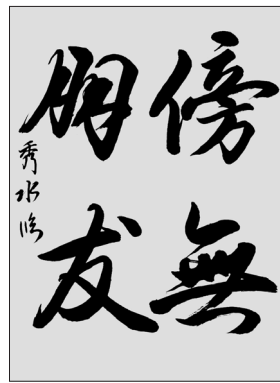 傍無
朋友
秀水臨